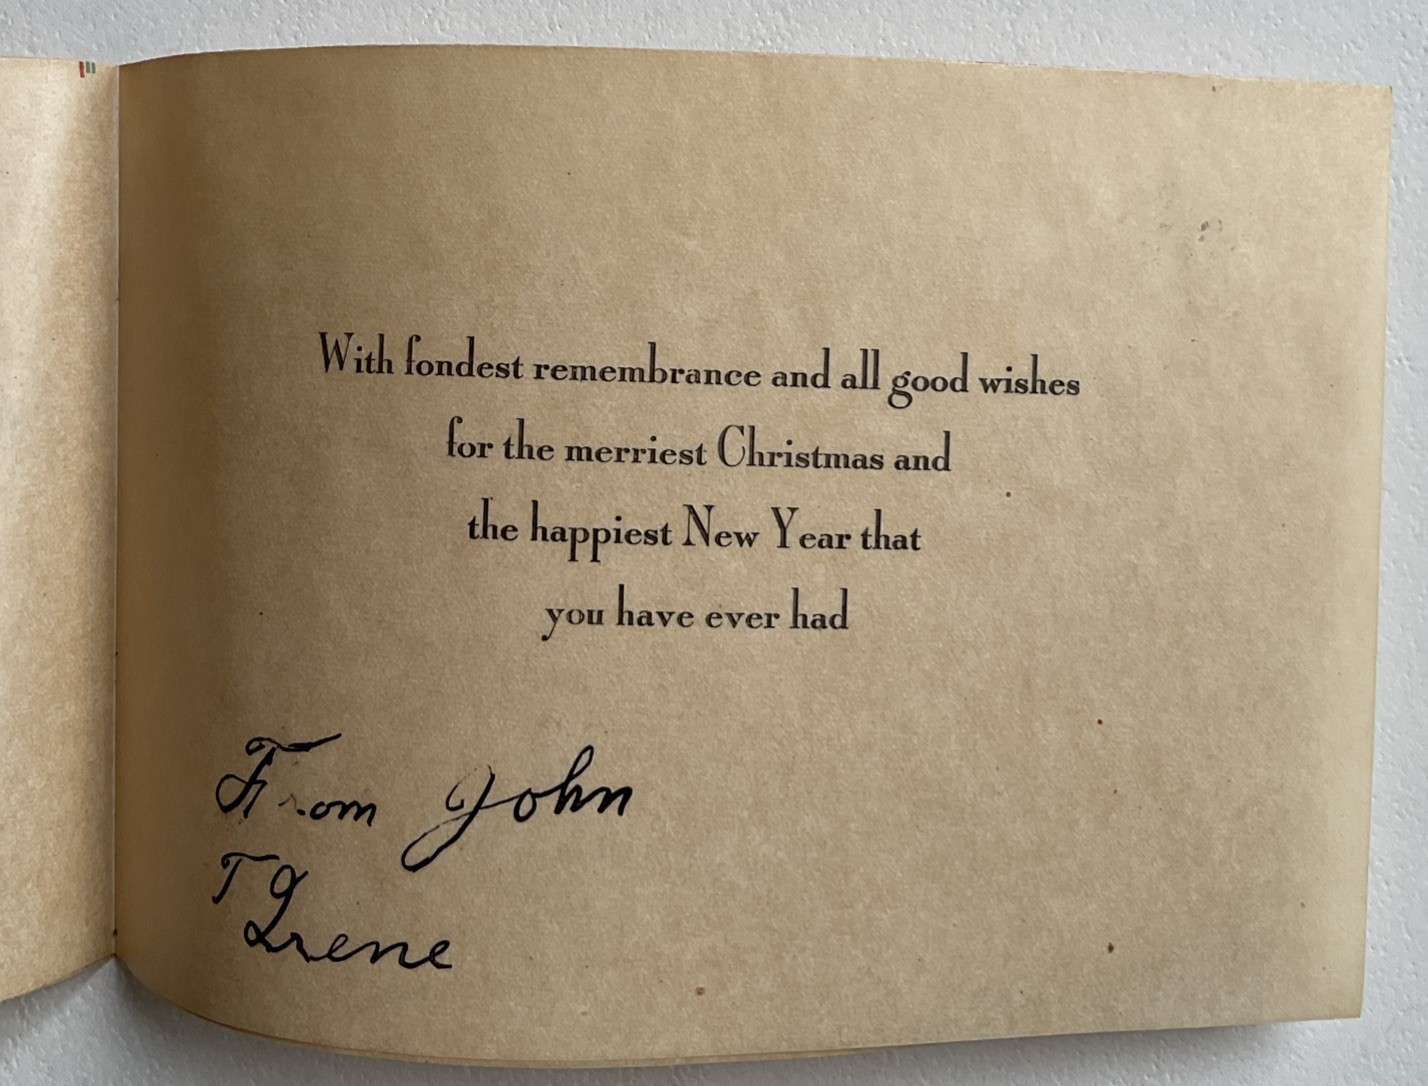 With fondest remembrance and all good wishes
for the merriest Christmas and
the happiest New Year that
you have ever had
From John
T Irene